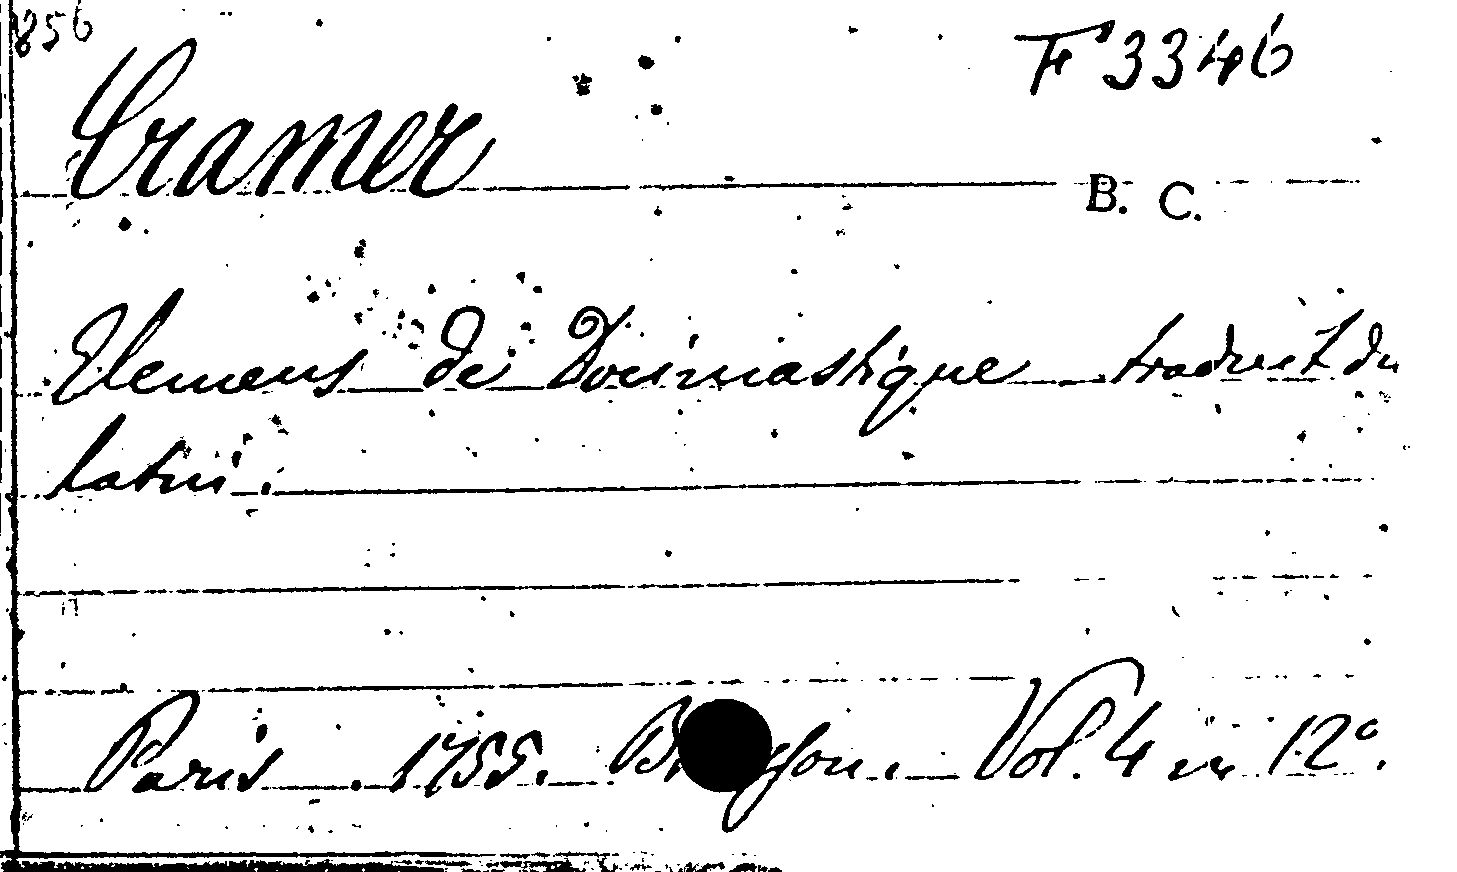 856
F 3346
Cramer
B. C.
Elemens de Docimastique traduit du
latin.
Paris. 1755. Vol. 4 in 12°.